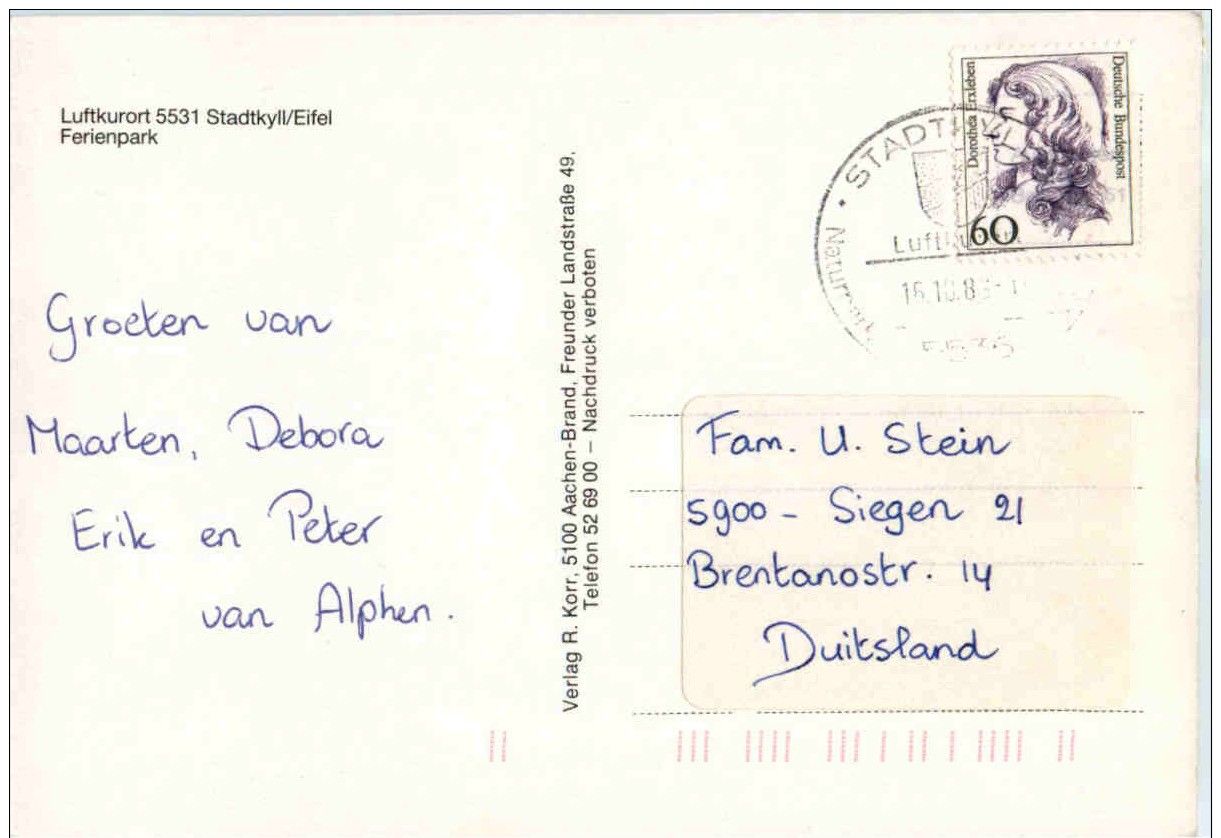 Luftkurort 5531 Stadtkyll/Eifel
Ferienpark
Groeten van
Maarten, Debora
Erik en Peter
van Alphen.
Verlag R. Korr, 5100 Aachen-Brand, Freunder Landstraße 49,
Telefon 52 69 00 – Nachdruck verboten
Deutsche Bundespost
Dorothea Erxleben
60
Fam. U. Stein
5900 - Siegen 21
Brentanostr. 14
Duitsland